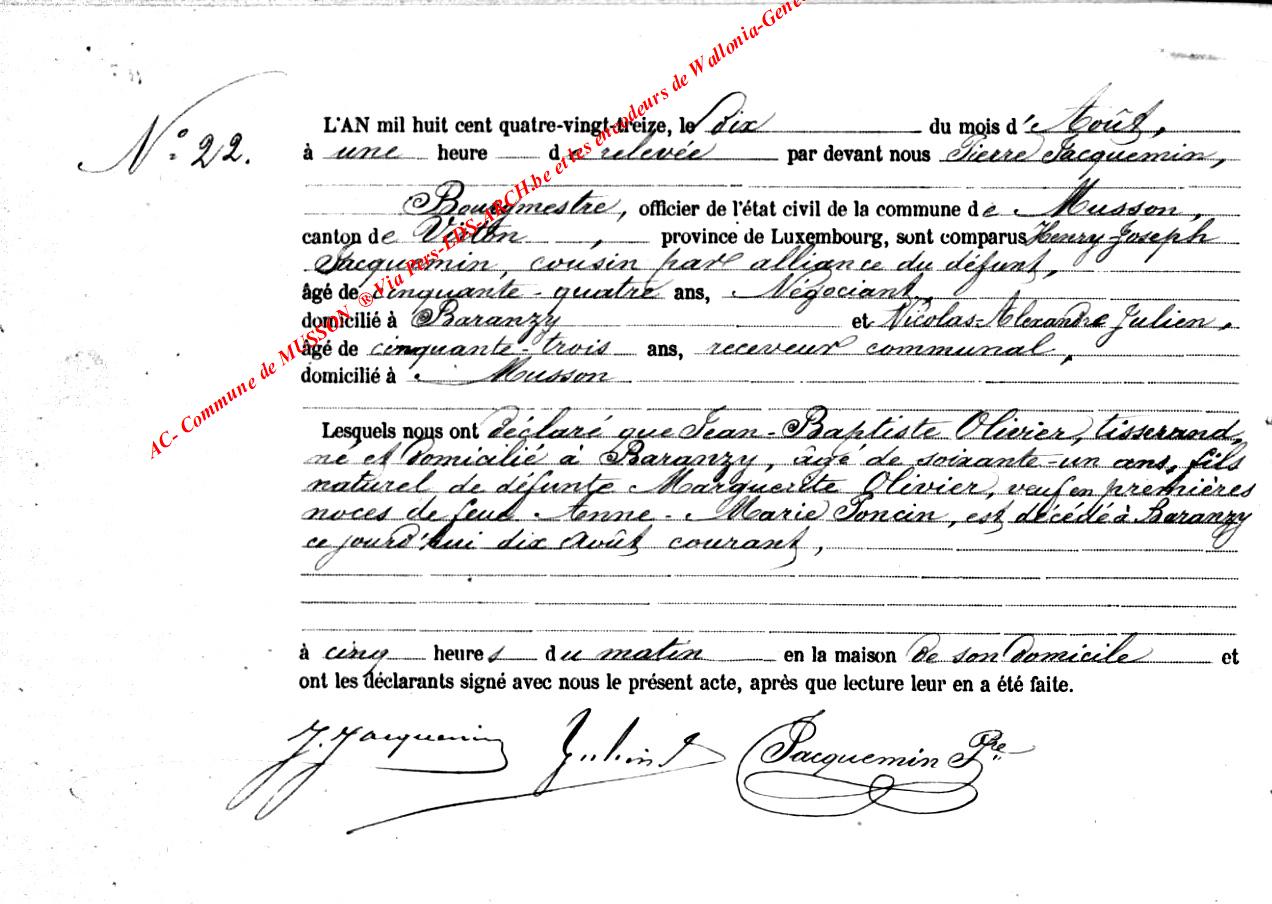 AC- Commune de MUSSON ® Via Pers-EDS-ARCH.be et les encodeurs de Wallonia-Gene
N° 22.
L'AN mil huit cent quatre-vingt-treize, le dix du mois d'Août,
à une heure de relevée par devant nous Pierre Jacquemin,
Bourgmestre, officier de l'état civil de la commune de Musson,
canton de Virton, province de Luxembourg, sont comparus Henry-Joseph
Jacquemin, cousin par alliance du défunt,
âgé de cinquante-quatre ans, Négociant,
domicilié à Baranzy et Nicolas-Alexandre Julien,
âgé de cinquante-trois ans, receveur communal,
domicilié à Musson
Lesquels nous ont déclaré que Jean-Baptiste Olivier, tisserand,
né et domicilié à Baranzy, âgé de soixante-un ans, fils
naturel de défunte Marguerite Olivier, veuf en premières
noces de feue Anne-Marie Poncin, est décédé à Baranzy
ce jourd'hui dix août courant,
à cinq heures du matin en la maison de son domicile et
ont les déclarants signé avec nous le présent acte, après que lecture leur en a été faite.
J. Jacquemin Julien Jacquemin Pre